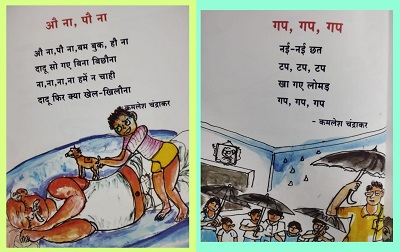 औ ना, पौ ना
औ ना,पौ ना,बम बुक, हौ ना
दादू सो गए बिना बिछौना
ना,ना,ना,ना हमें न चाही
दादू फिर क्या खेल-खिलौना
- कमलेश चंद्राकर
गप, गप, गप
नई-नई छत
टप, टप, टप
खा गए लोमड़
गप, गप, गप
- कमलेश चंद्राकर